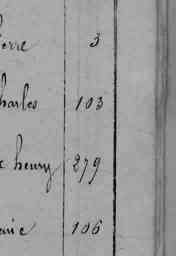 ierre 3
harles 103
henry 279
arie 106